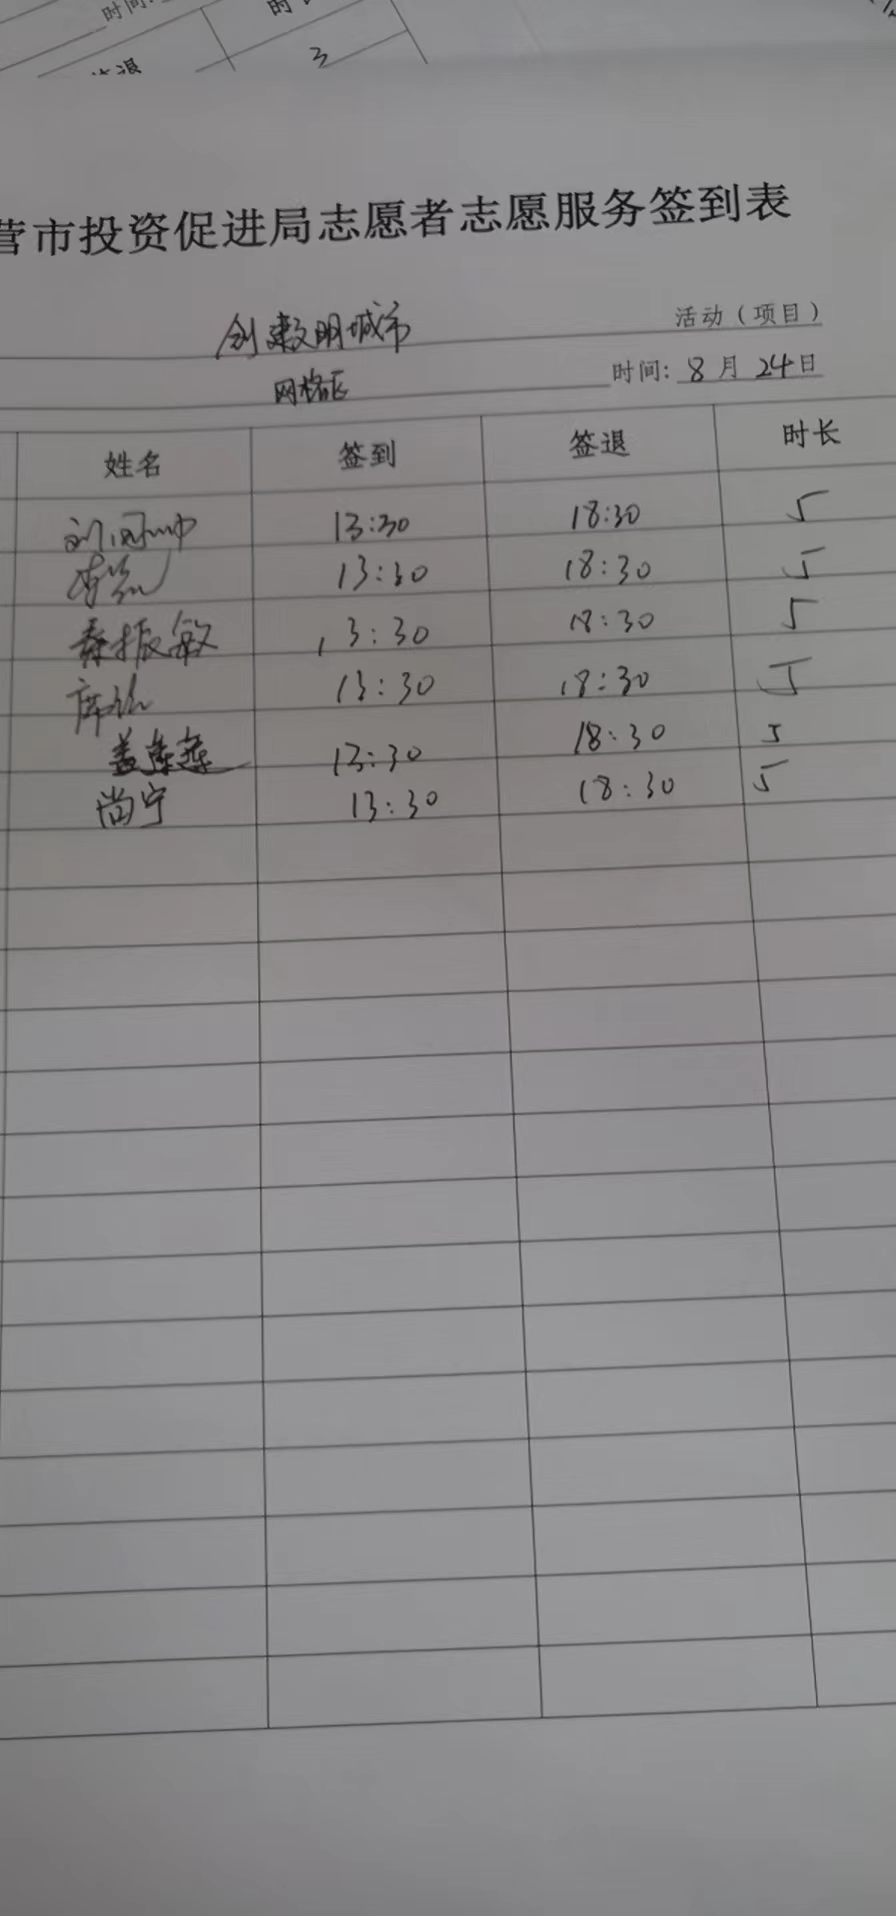 时间:
时长
签退
3
营市投资促进局志愿者志愿服务签到表
创建文明城市 活动（项目）
网格区 时间: 8月24日
姓名 签到 签退 时长
刘 13:30 18:30 5
李 13:30 18:30 5
秦振敏 13:30 18:30 5
席 13:30 18:30 5
盖莲莲 13:30 18:30 5
尚宁 13:30 18:30 5